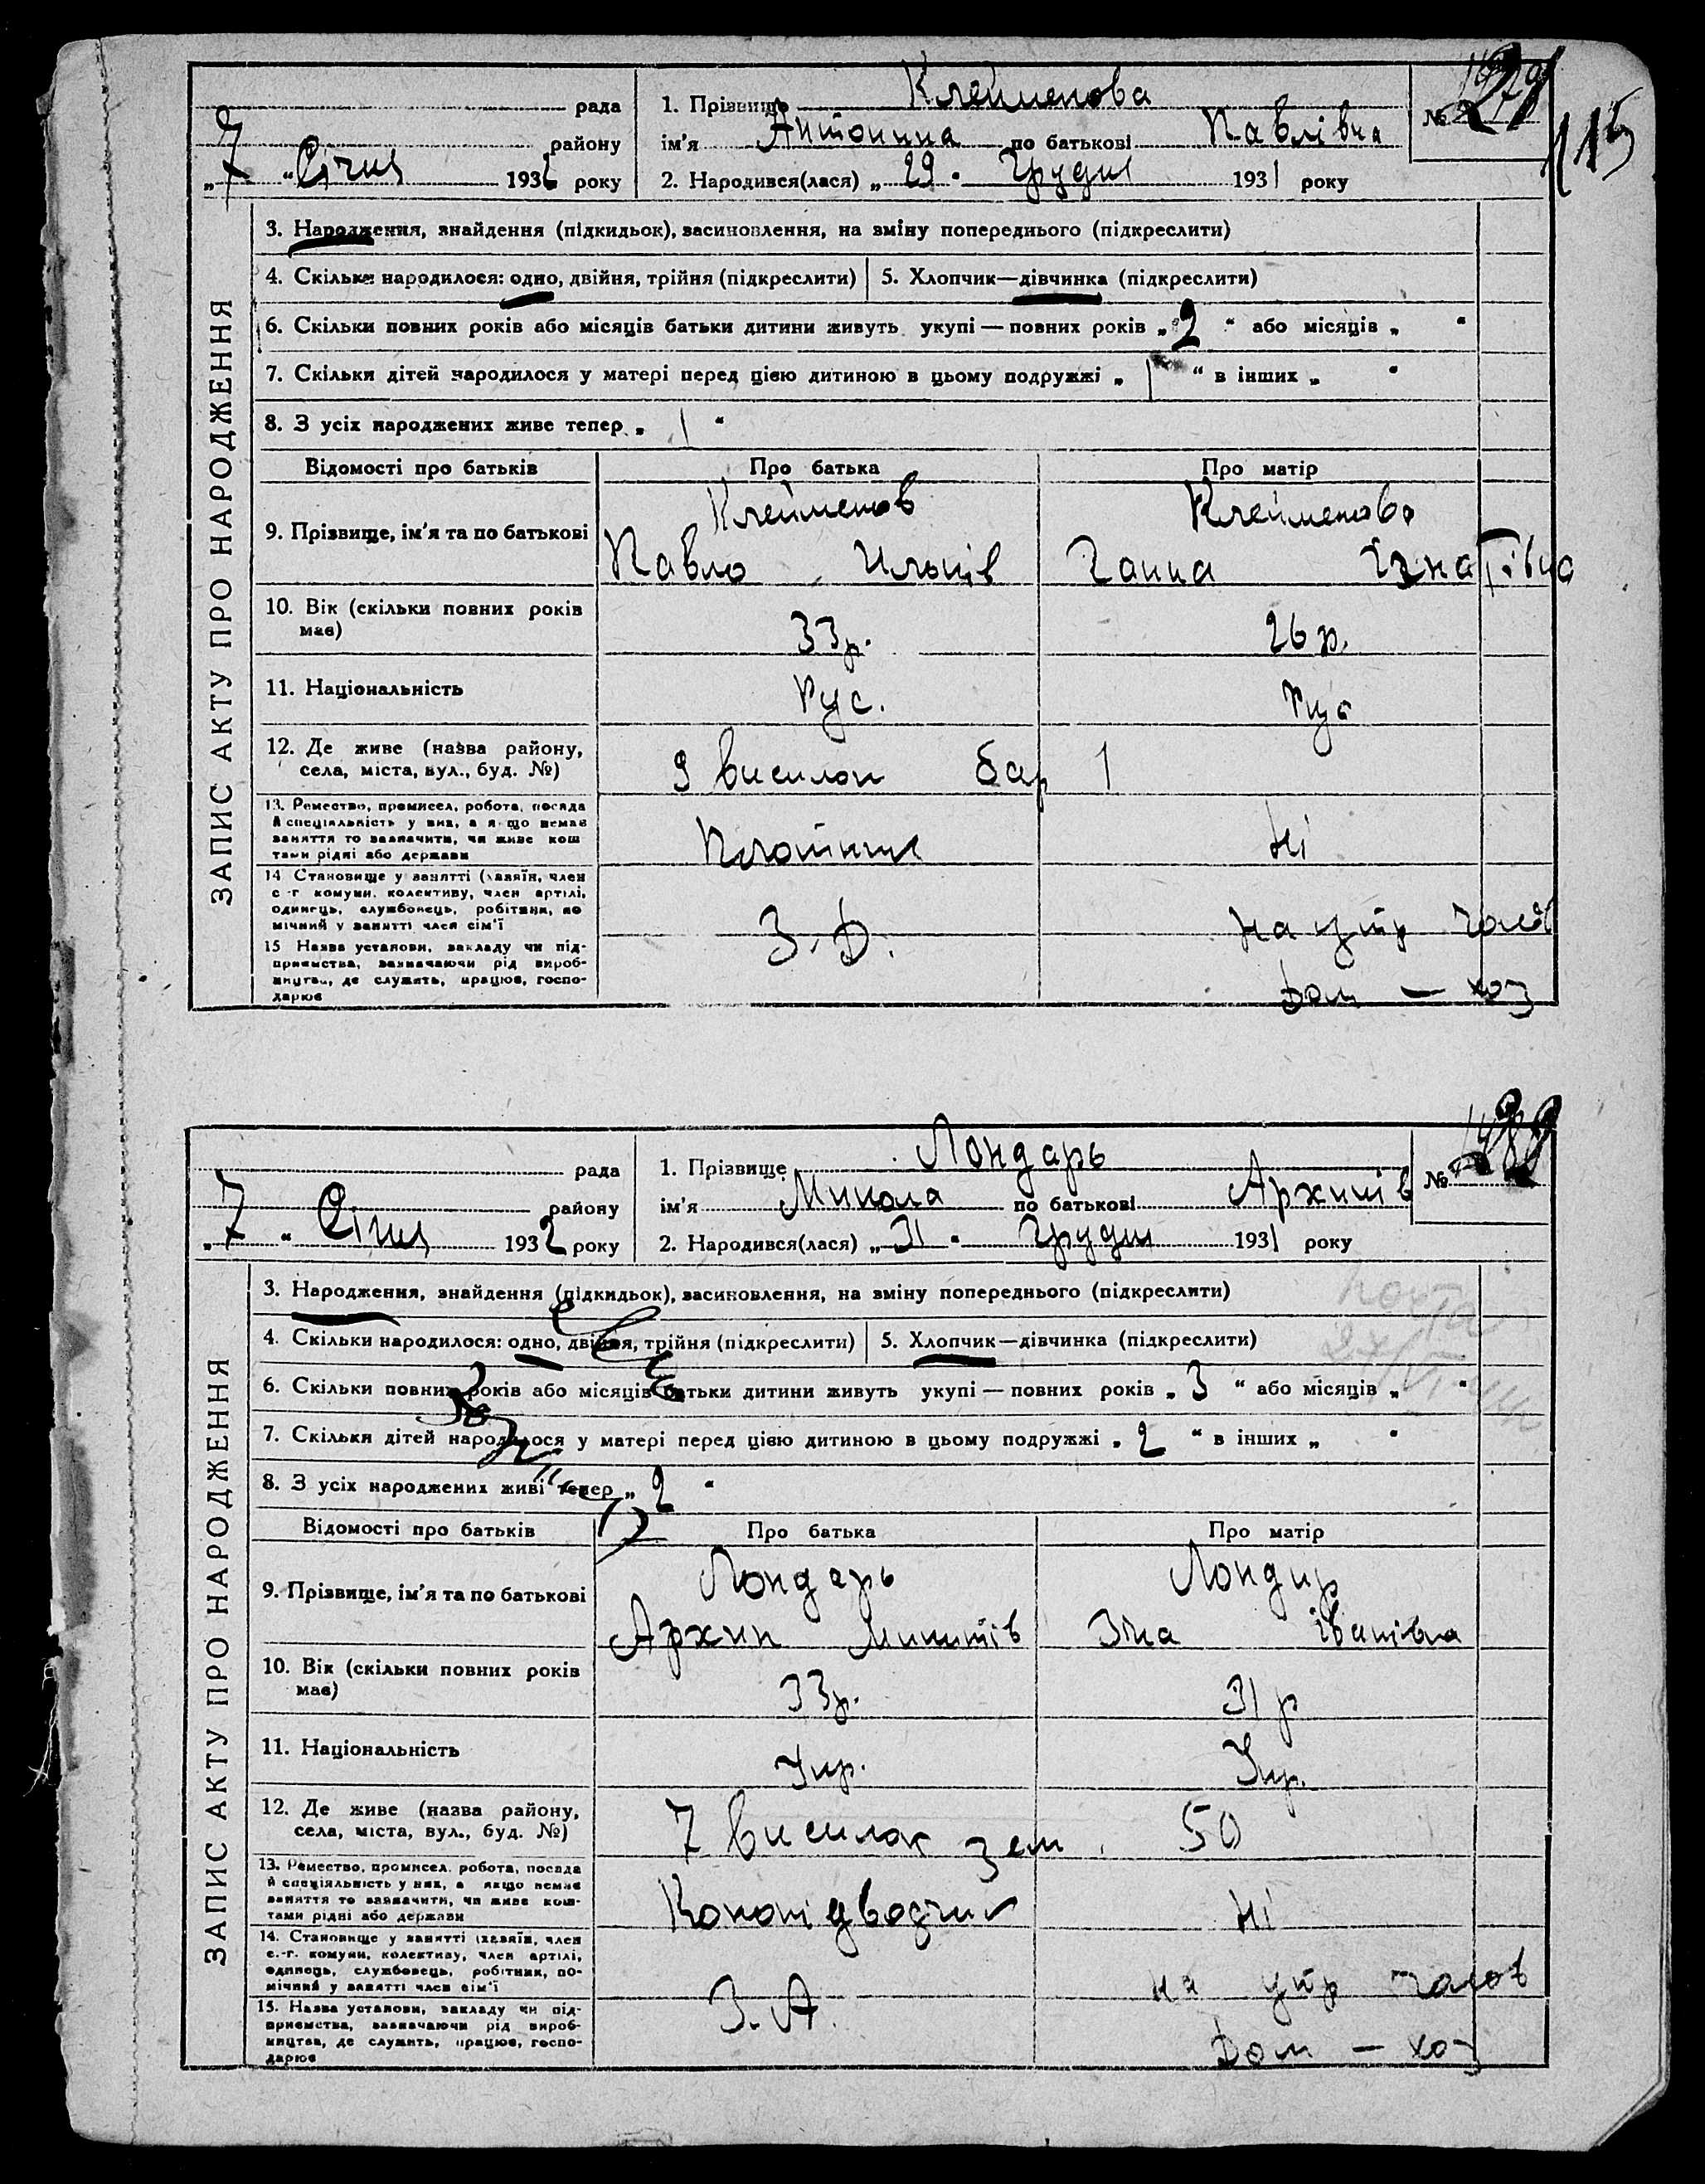 рада 1. Прізвище Клейменова №
району ім'я Антонина по батькові Павлівна
„7" Січня 1932 року 2. Народився(лася) „29" Грудня 1931 року
115
ЗАПИС АКТУ ПРО НАРОДЖЕННЯ
3. Народження, знайдення (підкидьок), засиновлення, на зміну попереднього (підкреслити)
4. Скільки народилося: одно, двійня, трійня (підкреслити) 5. Хлопчик—дівчинка (підкреслити)
6. Скільки повних років або місяців батьки дитини живуть укупі — повних років „2" або місяців „ "
7. Скільки дітей народилося у матері перед цією дитиною в цьому подружжі „1" в інших „ "
8. З усіх народжених живе тепер „1"
Відомості про батьків Про батька Про матір
Клейменов Клейменова
9. Прізвище, ім'я та по батькові Павло Ганна Ігнатівна
10. Вік (скільки повних років має) 33р. 26 р.
11. Національність Рус. Рус
12. Де живе (назва району, села, міста, вул., буд. №) 9 виселок бар 1
13. Ремество, промисел, робота, посада й спеціяльність у них, а якщо немає заняття то зазначити, чи живе коштами рідні або держави Плотник Ні
14 Становище у занятті (хазяїн, член с.-г. комуни, колективу, член артілі, одинець, службовець, робітник, помічний у занятті член сім'ї З.Д. на утр
15 Назва установи, закладу чи підприємства, зазначаючи рід виробництва, де служить, працює, господарює Дом — хоз
рада 1. Прізвище Лондарь №
району ім'я Микола по батькові Архипів
„7" Січня 1932 року 2. Народився(лася) „31" Грудня 1931 року
ЗАПИС АКТУ ПРО НАРОДЖЕННЯ
3. Народження, знайдення (підкидьок), засиновлення, на зміну попереднього (підкреслити)
4. Скільки народилося: одно, двійня, трійня (підкреслити) 5. Хлопчик—дівчинка (підкреслити)
6. Скільки повних років або місяців батьки дитини живуть укупі — повних років „3" або місяців „ "
7. Скільки дітей народилося у матері перед цією дитиною в цьому подружжі „2" в інших „ "
8. З усіх народжених живі тепер „2"
Відомості про батьків Про батька Про матір
Лондарь Лондар
9. Прізвище, ім'я та по батькові Архип Микитів Зіна Іванівна
10. Вік (скільки повних років має) 33р. 31 р
11. Національність Укр. Укр.
12. Де живе (назва району, села, міста, вул., буд. №) 7 виселок зем 50
13. Ремество, промисел, робота, посада й спеціяльність у них, а якщо немає заняття то зазначити, чи живе коштами рідні або держави Ні
14. Становище у занятті (хазяїн, член с.-г. комуни, колективу, член артілі, одинець, службовець, робітник, помічний у занятті член сім'ї З.А. на утр
15. Назва установи, закладу чи підприємства, зазначаючи рід виробництва, де служить, працює, господарює Дом — хоз